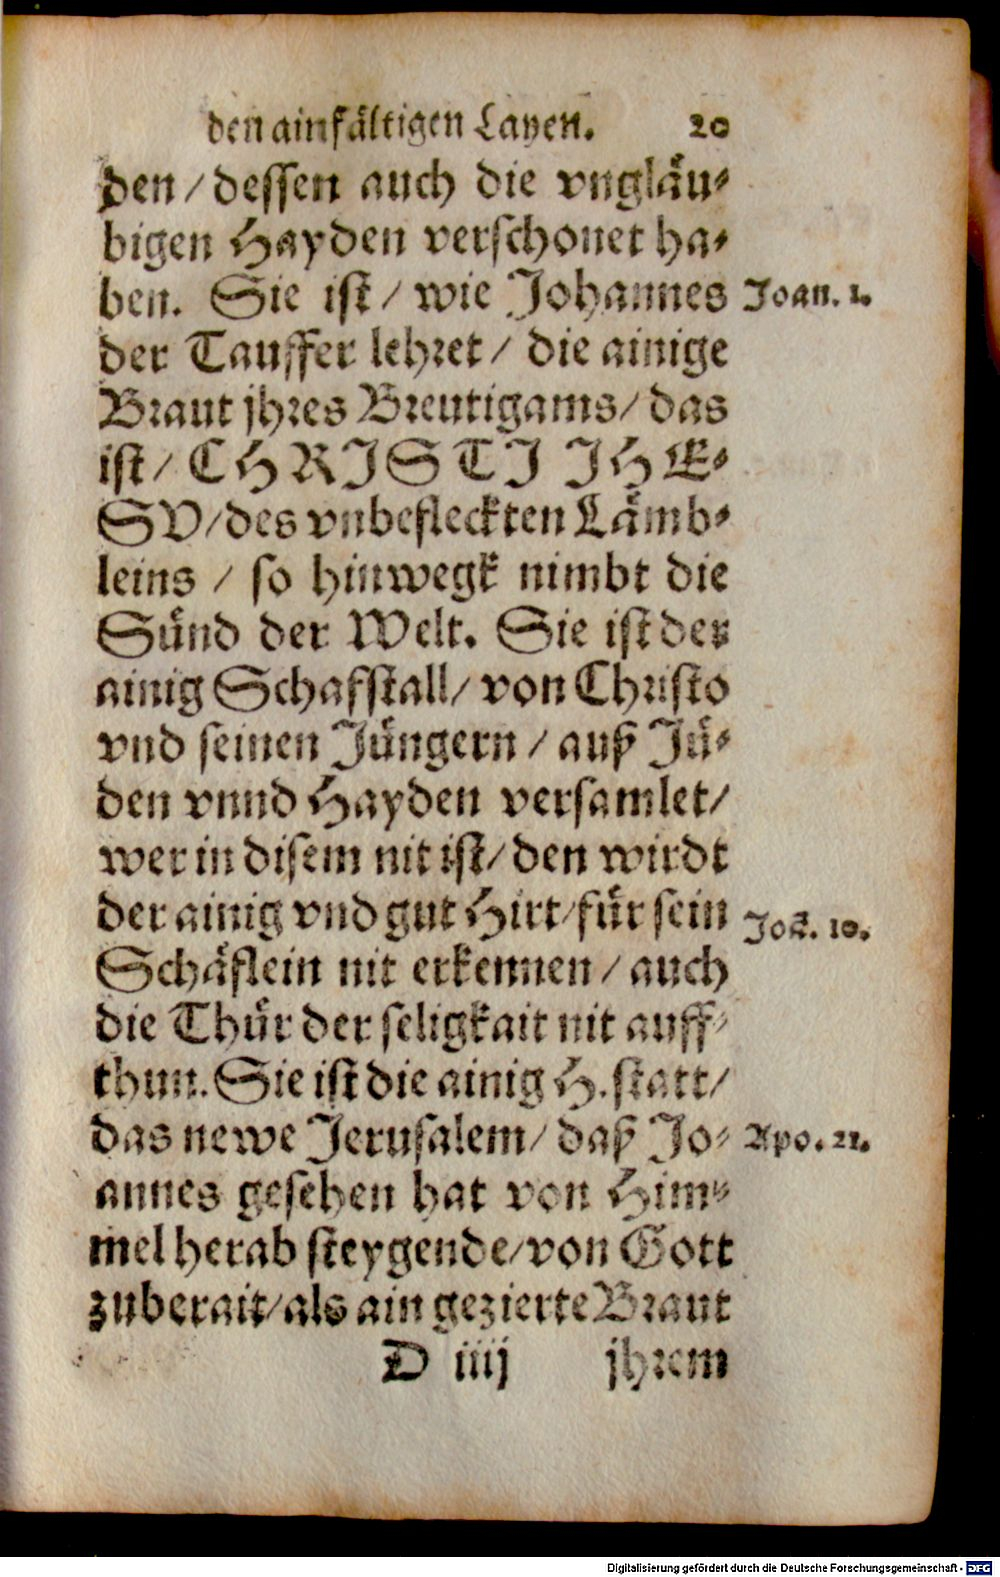 den ainfältigen Layen. 20
den / dessen auch die vngläu-
bigen Hayden verschonet ha-
ben. Sie ist / wie Johannes Joan. 1.
der Tauffer lehret / die ainige
Braut jhres Breutigams / das
ist / CHRISTI JHE-
SV / des vnbefleckten Lämb-
leins / so hinwegk nimbt die
Sünd der Welt. Sie ist der
ainig Schafstall / von Christo
vnd seinen Jüngern / auß Jü-
den vnnd Hayden versamlet /
wer in disem nit ist / den wirdt
der ainig vnd gut Hirt / für sein Joh. 10.
Schäflein nit erkennen / auch
die Thür der seligkait nit auff-
thun. Sie ist die ainig H. statt /
das newe Jerusalem / daß Jo- Apo. 21.
annes gesehen hat von Him-
mel herab steygende / von Gott
zuberait / als ain gezierte Braut
D iiij jhrem
Digitalisierung gefördert durch die Deutsche Forschungsgemeinschaft - DFG